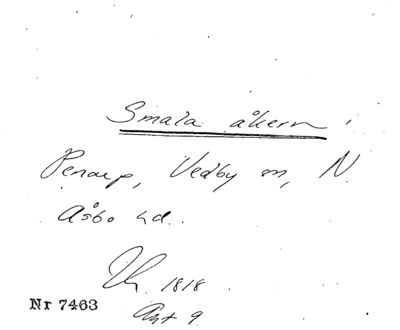 Smala åkern
Penarp, Vedby sn, N.
Åsbo hd.
1818
Nr 7463
Akt 9